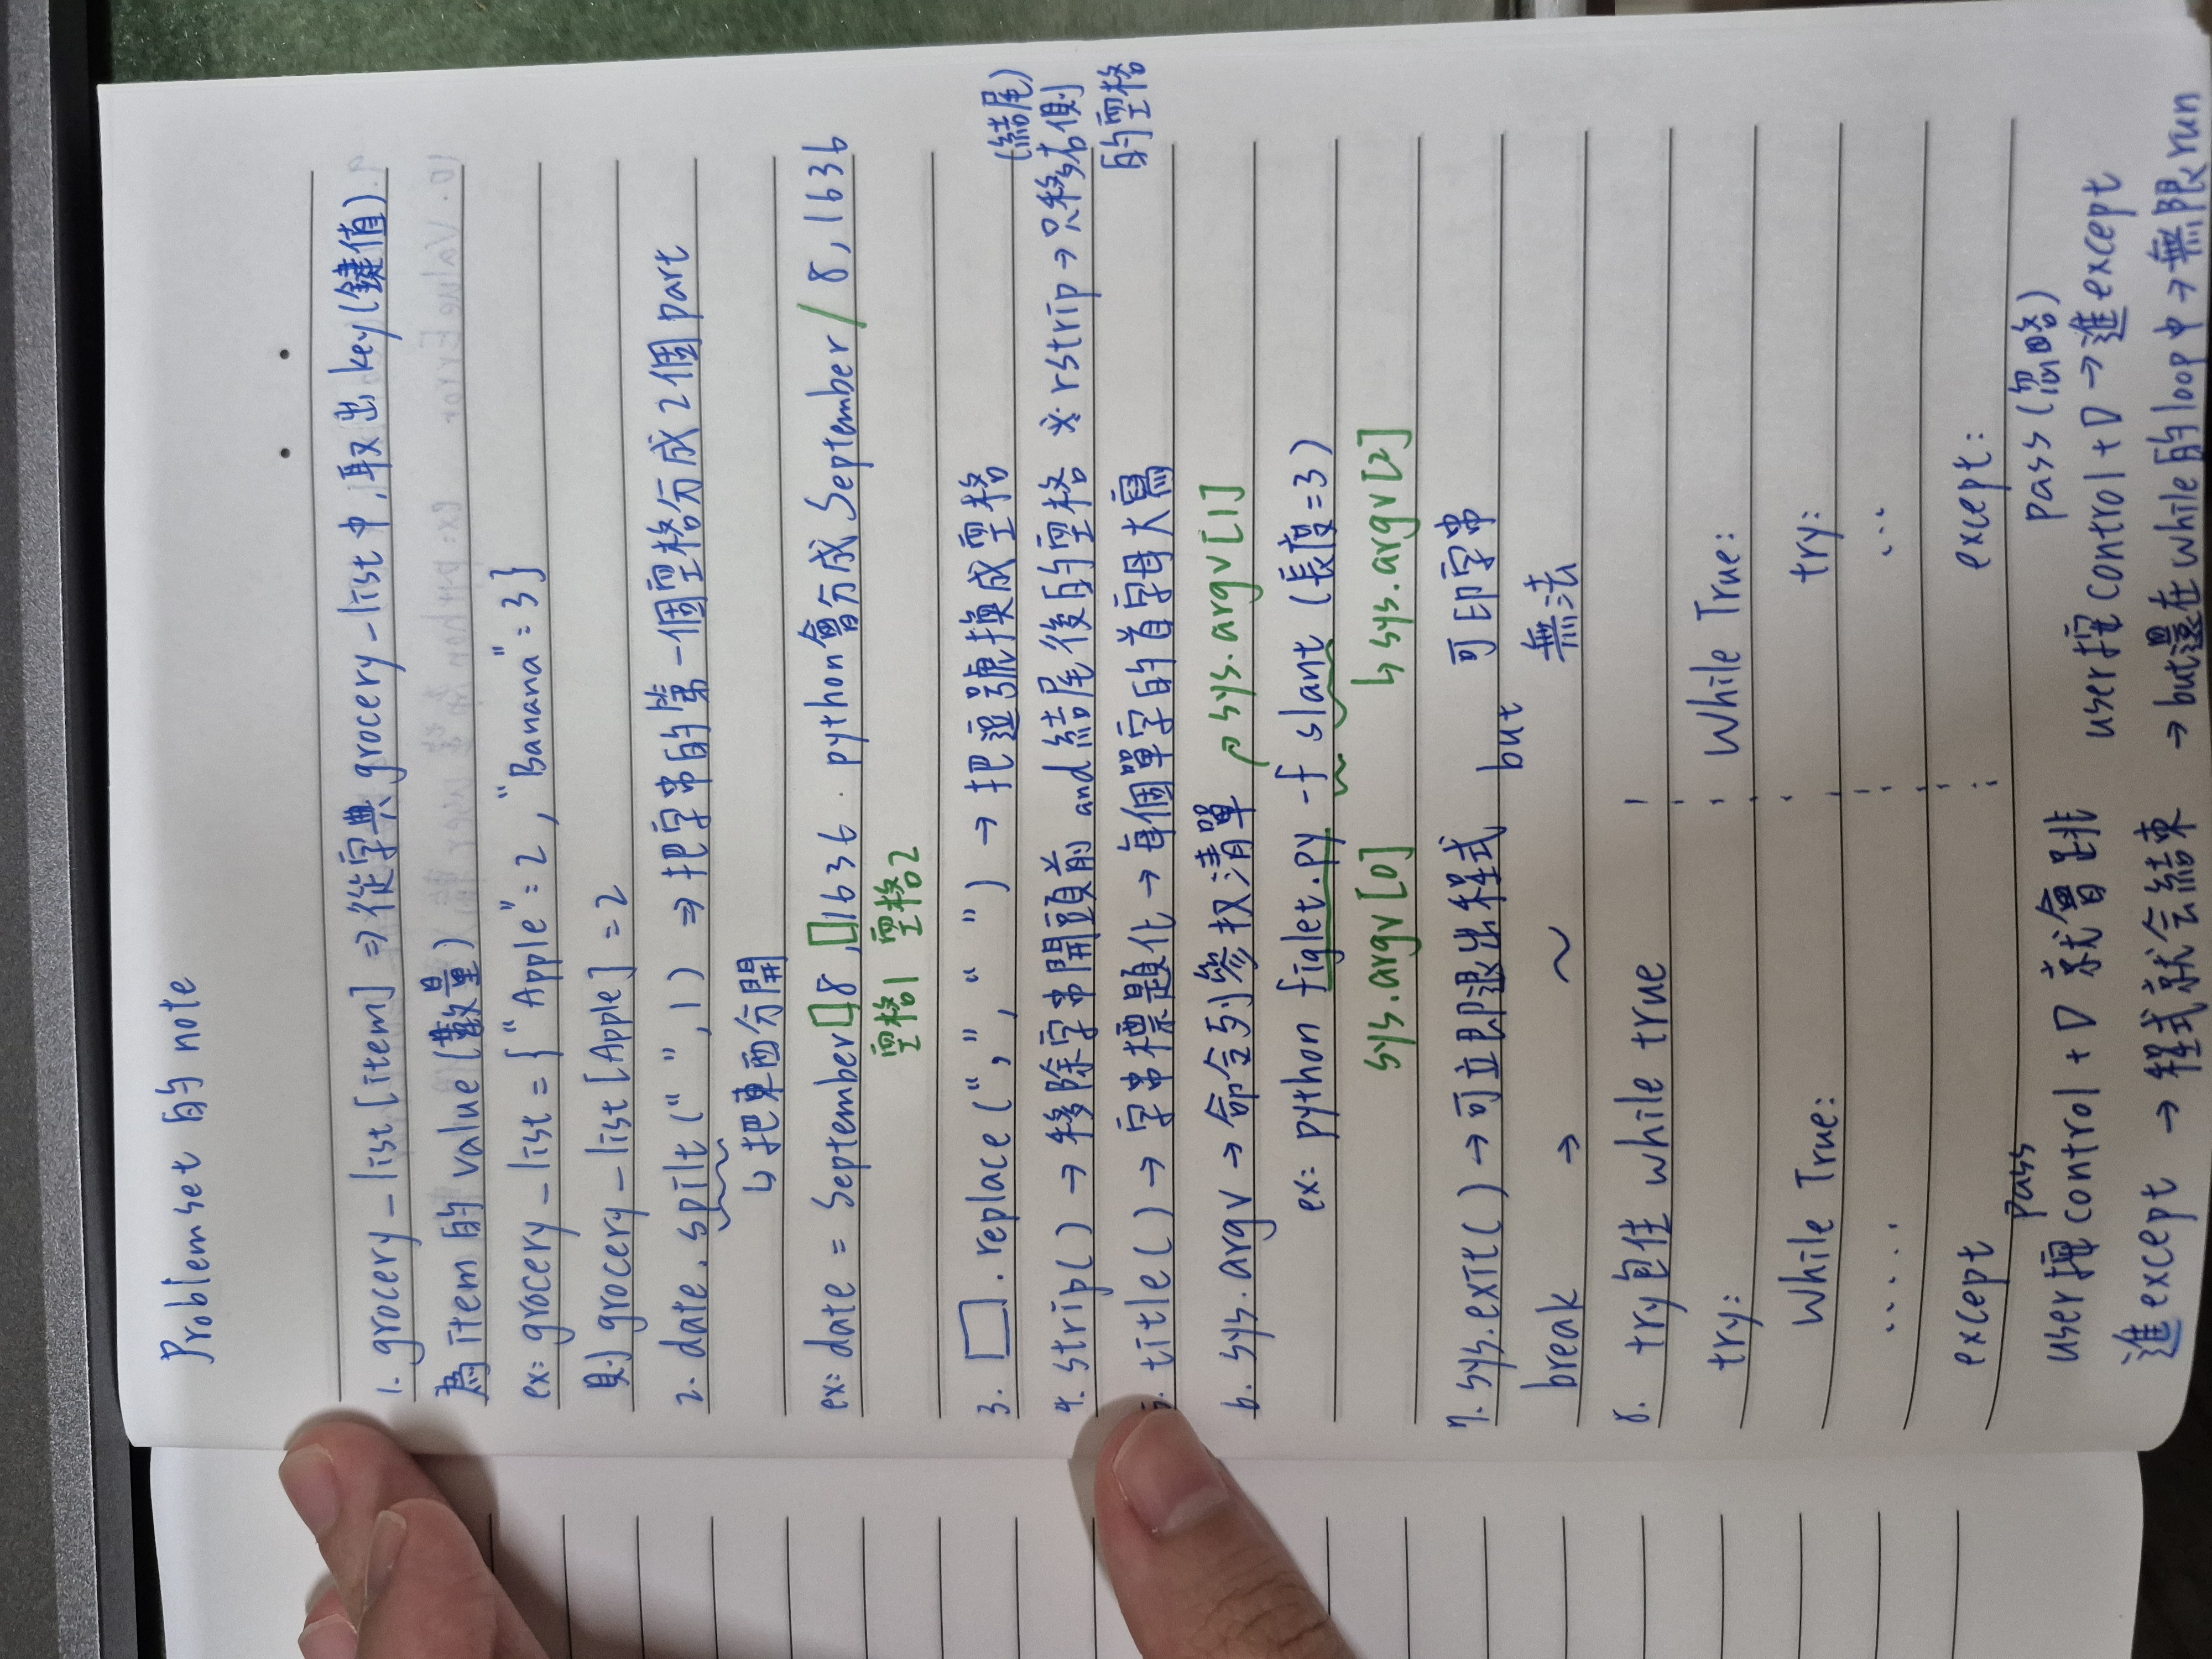 Problem set 的 note
1. grocery_list [item] ⇒ 從字典 grocery_list 中, 取出 key (鍵值)
為 item 的 value (數量)
ex: grocery_list = { "Apple" : 2 , "Banana" : 3 }
則 grocery_list [Apple] = 2
2. date. spilt (" ", 1) ⇒ 把字串的第一個空格分成 2 個 part
↳ 把東西分開
ex: date = September□8,□1636. python會分成 September / 8, 1636
空格1 空格2
3. □. replace (",", " ") → 把逗號換成空格
(結尾)
4. strip( ) → 移除字串開頭前 and 結尾後的空格 ※ rstrip → 只移右側
的空格
5. title( ) → 字串標題化 → 每個單字的首字母大寫
6. sys. argv → 命令列參权清單 ↗ sys. argv [1]
ex: python figlet.py -f slant (長度=3)
sys. argv [0] ↳ sys. argv [2]
7. sys. exit( ) → 可立即退出程式 but 可印字串
break → ~ 無法
8. try 包住 while true
try: While True:
While True: try:
..... ...
except except:
pass pass (忽略)
user按 control + D 就會跳 user按 control + D → 進 except
進 except → 程式就会結束 → but還在 while 的 loop 中 → 無限 run